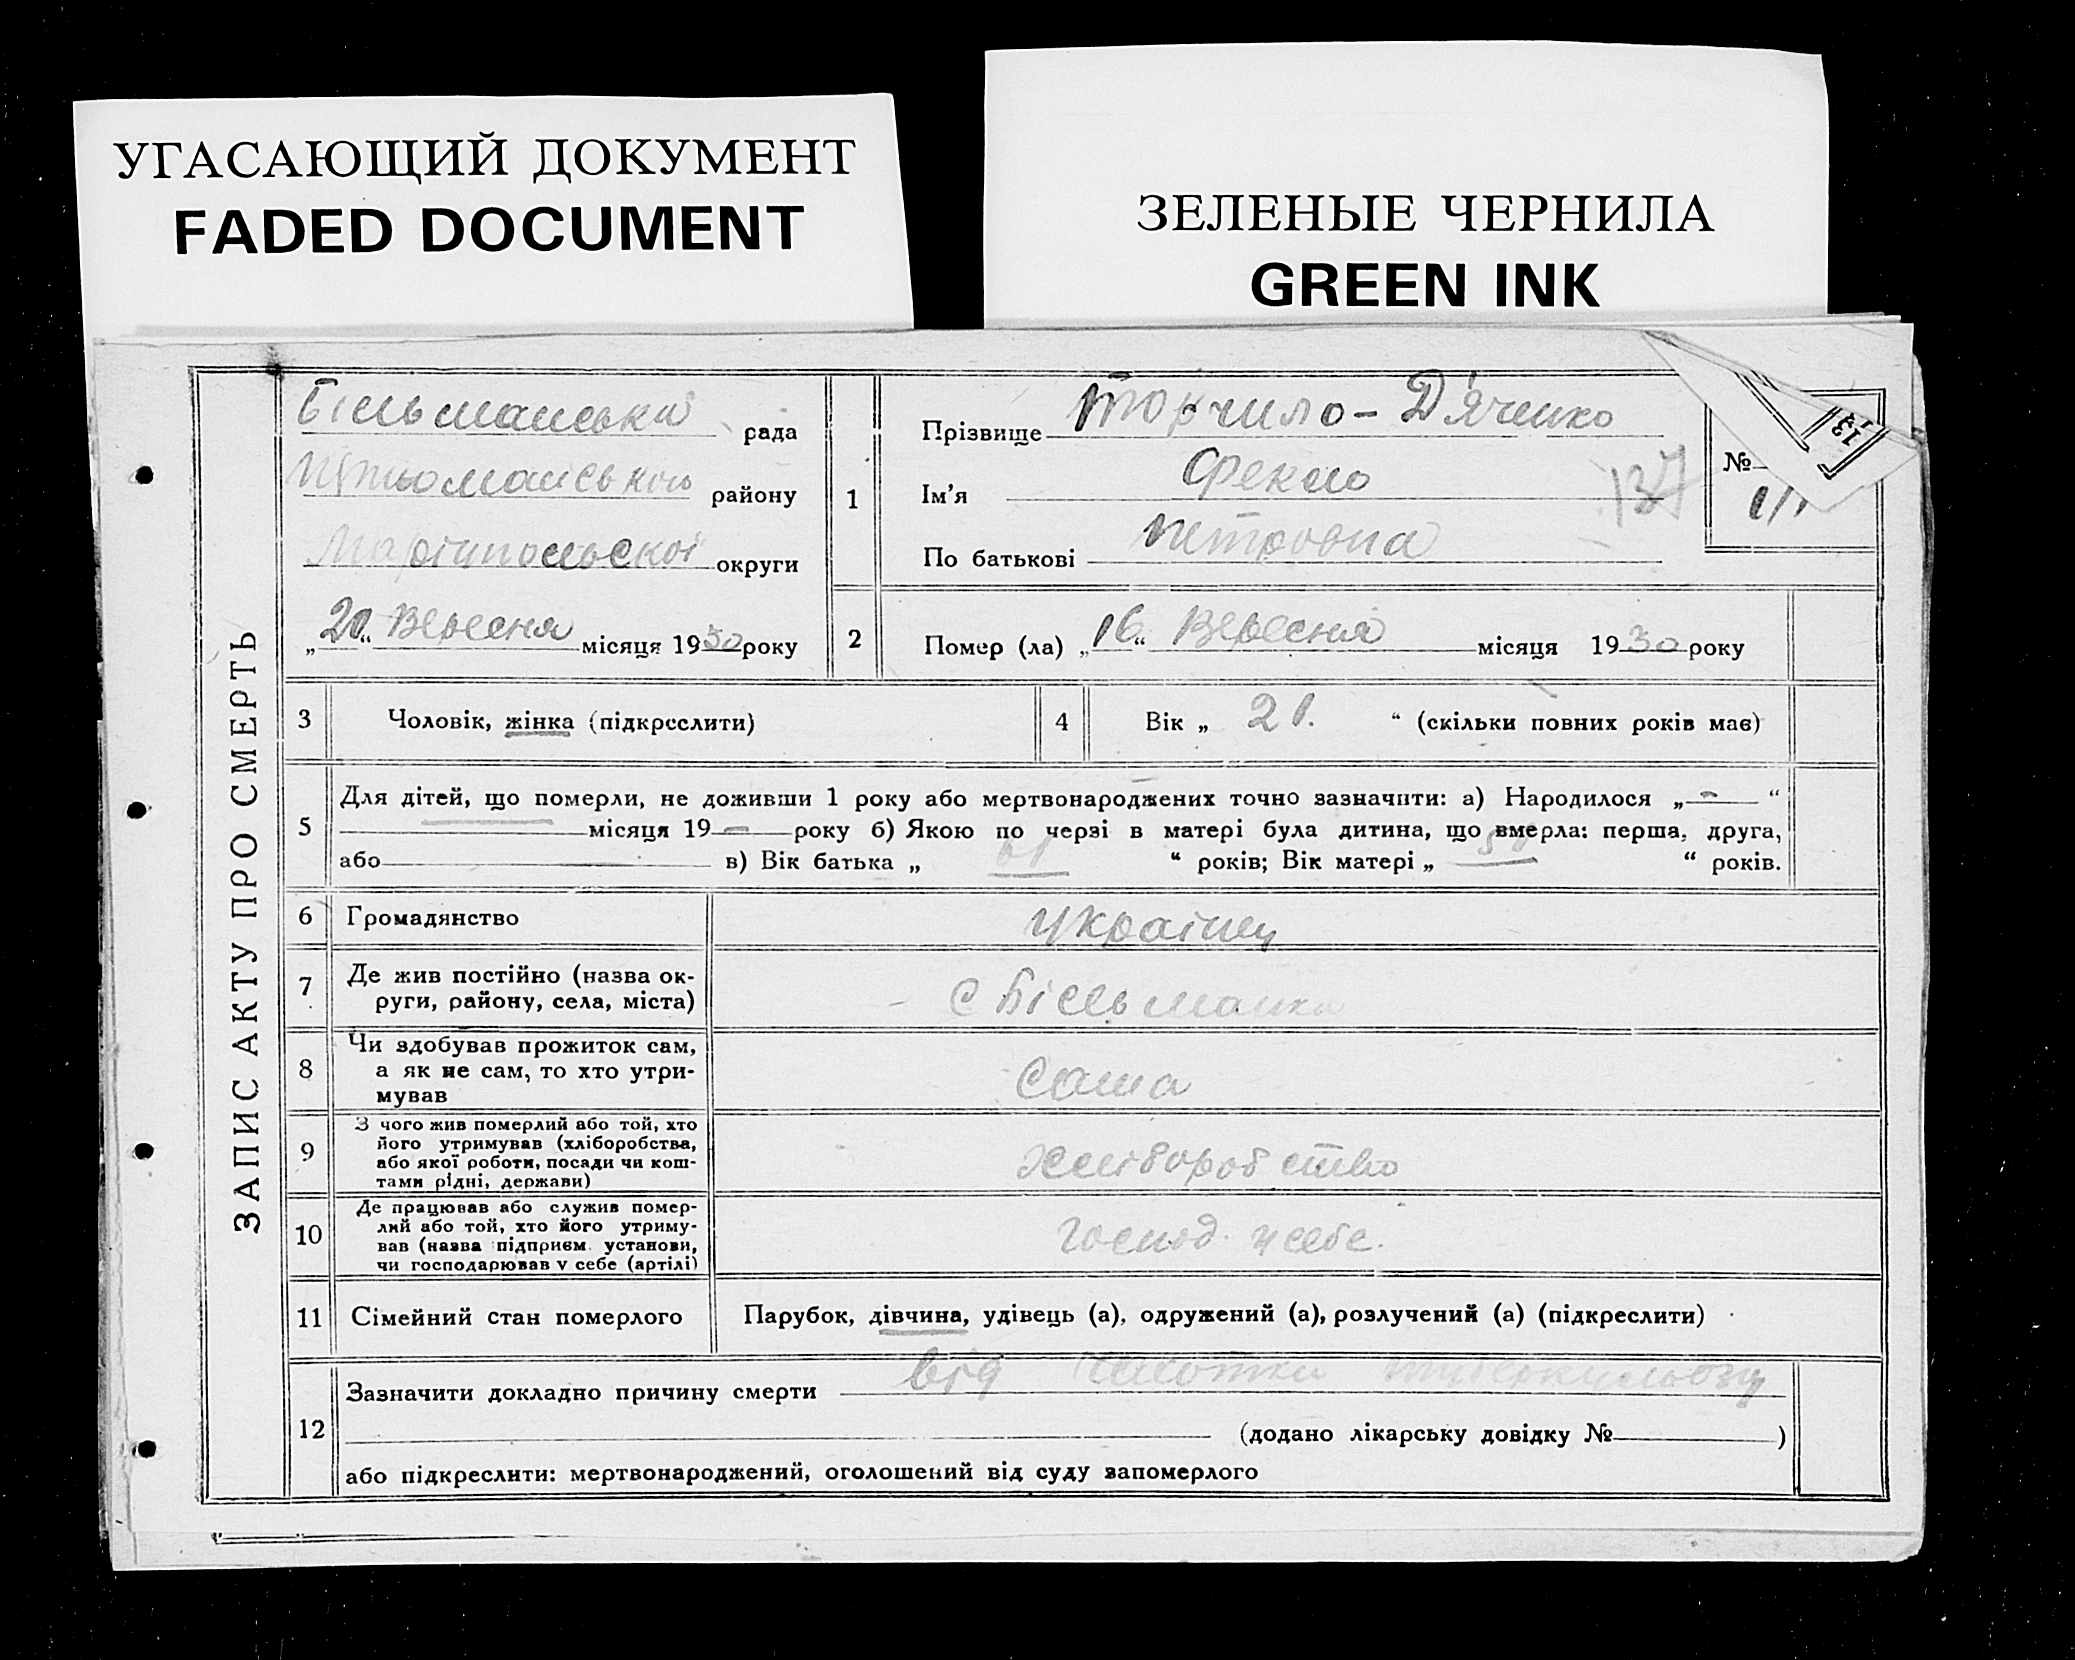 УГАСАЮЩИЙ ДОКУМЕНТ
FADED DOCUMENT
ЗЕЛЕНЫЕ ЧЕРНИЛА
GREEN INK
ЗАПИС АКТУ ПРО СМЕРТЬ
Більманська рада
району
Маріупольської округи
„20“ Вересня місяця 1930 року
1
Прізвище Торчило-Д'яченко
Ім'я Фекла
По батькові Петровна
№
137
13
2
Помер (ла) „16“ Вересня місяця 1930 року
3 Чоловік, жінка (підкреслити)
4 Вік „ 21. “ (скільки повних років має)
5
Для дітей, що померли, не доживши 1 року або мертвонароджених точно зазначити: а) Народилося „ - “
місяця 19 - року б) Якою по черзі в матері була дитина, що вмерла: перша, друга,
або в) Вік батька „ “ років; Вік матері „ “ років.
6 Громадянство українец
7 Де жив постійно (назва ок-
руги, району, села, міста)
с Більманка
8 Чи здобував прожиток сам,
а як не сам, то хто утри-
мував
сама
9 З чого жив померлий або той, хто
його утримував (хліборобства,
або якої роботи, посади чи кош-
тами рідні, держави)
хліборобство
10 Де працював або служив помер-
лий або той, хто його утриму-
вав (назва підприєм. установи,
чи господарював у себе (артілі)
господ. у себе.
11 Сімейний стан померлого Парубок, дівчина, удівець (а), одружений (а), розлучений (а) (підкреслити)
12 Зазначити докладно причину смерти від чахотки туберкульозу
(додано лікарську довідку № )
або підкреслити: мертвонароджений, оголошений від суду запомерлого